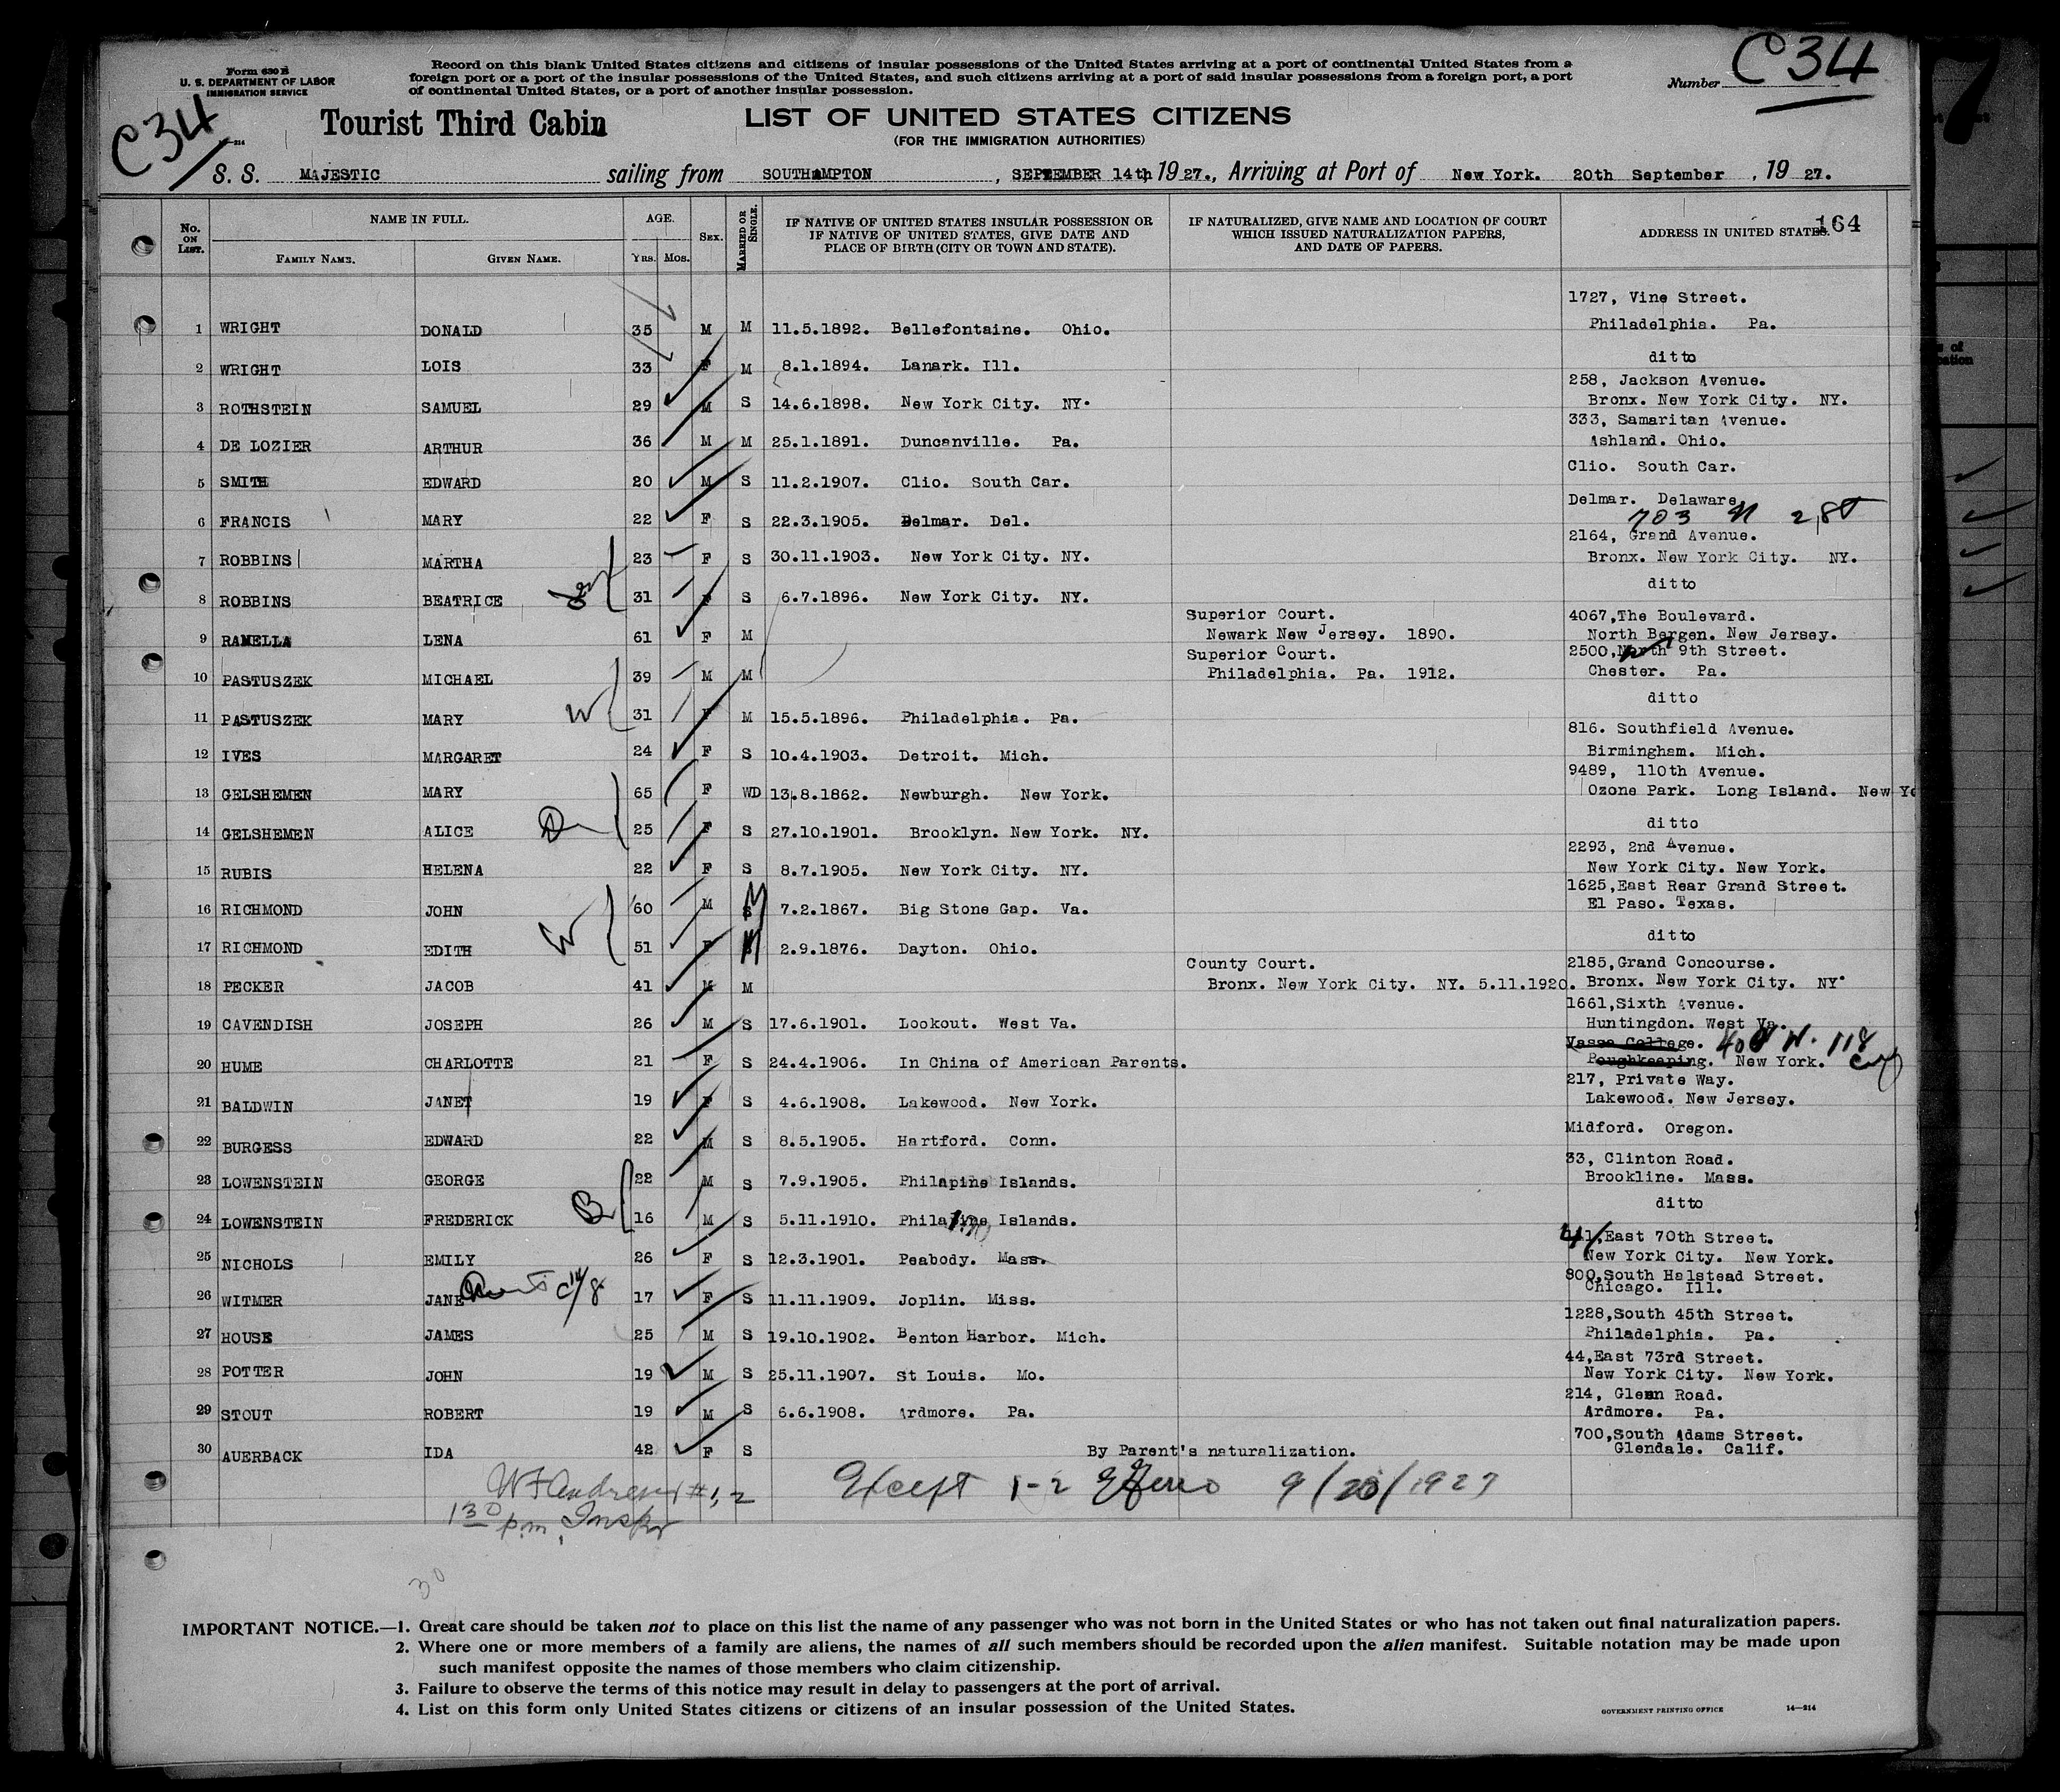 Form 630 B
U. S. DEPARTMENT OF LABOR
IMMIGRATION SERVICE
Record on this blank United States citizens and citizens of insular possessions of the United States arriving at a port of continental United States from a
foreign port or a port of the insular possessions of the United States, and such citizens arriving at a port of said insular possessions from a foreign port, a port
of continental United States, or a port of another insular possession.
Number C34
C34
Tourist Third Cabin
LIST OF UNITED STATES CITIZENS
(FOR THE IMMIGRATION AUTHORITIES)
S. S. MAJESTIC sailing from SOUTHAMPTON, SEPTEMBER 14th, 1927., Arriving at Port of New York. 20th September, 19 27.
No. ON LIST. NAME IN FULL. FAMILY NAME. GIVEN NAME. AGE. YRS. MOS. SEX. MARRIED OR SINGLE. IF NATIVE OF UNITED STATES INSULAR POSSESSION OR IF NATIVE OF UNITED STATES, GIVE DATE AND PLACE OF BIRTH (CITY OR TOWN AND STATE). IF NATURALIZED, GIVE NAME AND LOCATION OF COURT WHICH ISSUED NATURALIZATION PAPERS, AND DATE OF PAPERS. ADDRESS IN UNITED STATES. 164
1 WRIGHT DONALD 35 M M 11.5.1892. Bellefontaine. Ohio. 1727, Vine Street. Philadelphia. Pa.
2 WRIGHT LOIS 33 F M 8.1.1894. Lanark. Ill. ditto
3 ROTHSTEIN SAMUEL 29 M S 14.6.1898. New York City. NY. 258, Jackson Avenue. Bronx. New York City. NY.
4 DE LOZIER ARTHUR 36 M M 25.1.1891. Duncanville. Pa. 333, Samaritan Avenue. Ashland. Ohio.
5 SMITH EDWARD 20 M S 11.2.1907. Clio. South Car. Clio. South Car.
6 FRANCIS MARY 22 F S 22.3.1905. Delmar. Del. Delmar. Delaware. 703 N 2 St
7 ROBBINS MARTHA 23 F S 30.11.1903. New York City. NY. 2164, Grand Avenue. Bronx. New York City. NY.
8 ROBBINS BEATRICE 31 F S 6.7.1896. New York City. NY. ditto
9 RAMELLA LENA 61 F M Superior Court. Newark New Jersey. 1890. 4067,The Boulevard. North Bergen. New Jersey.
10 PASTUSZEK MICHAEL 39 M M Superior Court. Philadelphia. Pa. 1912. 2500,North 9th Street. Chester. Pa.
11 PASTUSZEK MARY W 31 F M 15.5.1896. Philadelphia. Pa. ditto
12 IVES MARGARET 24 F S 10.4.1903. Detroit. Mich. 816. Southfield Avenue. Birmingham. Mich.
13 GELSHEMEN MARY 65 F WD 13.8.1862. Newburgh. New York. 9489, 110th Avenue. Ozone Park. Long Island. New Yo
14 GELSHEMEN ALICE D 25 F S 27.10.1901. Brooklyn. New York. NY. ditto
15 RUBIS HELENA 22 F S 8.7.1905. New York City. NY. 2293, 2nd Avenue. New York City. New York.
16 RICHMOND JOHN 60 M M 7.2.1867. Big Stone Gap. Va. 1625,East Rear Grand Street. El Paso. Texas.
17 RICHMOND EDITH W 51 F M 2.9.1876. Dayton. Ohio. ditto
18 PECKER JACOB 41 M M County Court. Bronx. New York City. NY. 5.11.1920. 2185,Grand Concourse. Bronx. New York City. NY.
19 CAVENDISH JOSEPH 26 M S 17.6.1901. Lookout. West Va. 1661,Sixth Avenue. Huntingdon. West Va.
20 HUME CHARLOTTE 21 F S 24.4.1906. In China of American Parents. Vassa College. Poughkeeping. New York. 400 W. 118 City
21 BALDWIN JANET 19 F S 4.6.1908. Lakewood. New York. 217, Private Way. Lakewood. New Jersey.
22 BURGESS EDWARD 22 M S 8.5.1905. Hartford. Conn. Midford. Oregon.
23 LOWENSTEIN GEORGE 22 M S 7.9.1905. Philapine Islands. 33, Clinton Road. Brookline. Mass.
24 LOWENSTEIN FREDERICK B 16 M S 5.11.1910. Philapine Islands. ditto
25 NICHOLS EMILY 26 F S 12.3.1901. Peabody. Mass. 41,East 70th Street. New York City. New York.
26 WITMER JANE 17 F S 11.11.1909. Joplin. Miss. 800,South Halstead Street. Chicago. Ill.
27 HOUSE JAMES 25 M S 19.10.1902. Benton Harbor. Mich. 1228,South 45th Street. Philadelphia. Pa.
28 POTTER JOHN 19 M S 25.11.1907. St Louis. Mo. 44,East 73rd Street. New York City. New York.
29 STOUT ROBERT 19 M S 6.6.1908. Ardmore. Pa. 214, Glenn Road. Ardmore. Pa.
30 AUERBACK IDA 42 F S By Parent's naturalization. 700,South Adams Street. Glendale. Calif.
W F Andrews #1, 2 Except 1-2 9/20/1927
1 30 p.m. Inspr
30
IMPORTANT NOTICE.—1. Great care should be taken not to place on this list the name of any passenger who was not born in the United States or who has not taken out final naturalization papers.
2. Where one or more members of a family are aliens, the names of all such members should be recorded upon the alien manifest. Suitable notation may be made upon
such manifest opposite the names of those members who claim citizenship.
3. Failure to observe the terms of this notice may result in delay to passengers at the port of arrival.
4. List on this form only United States citizens or citizens of an insular possession of the United States.
GOVERNMENT PRINTING OFFICE 14—214